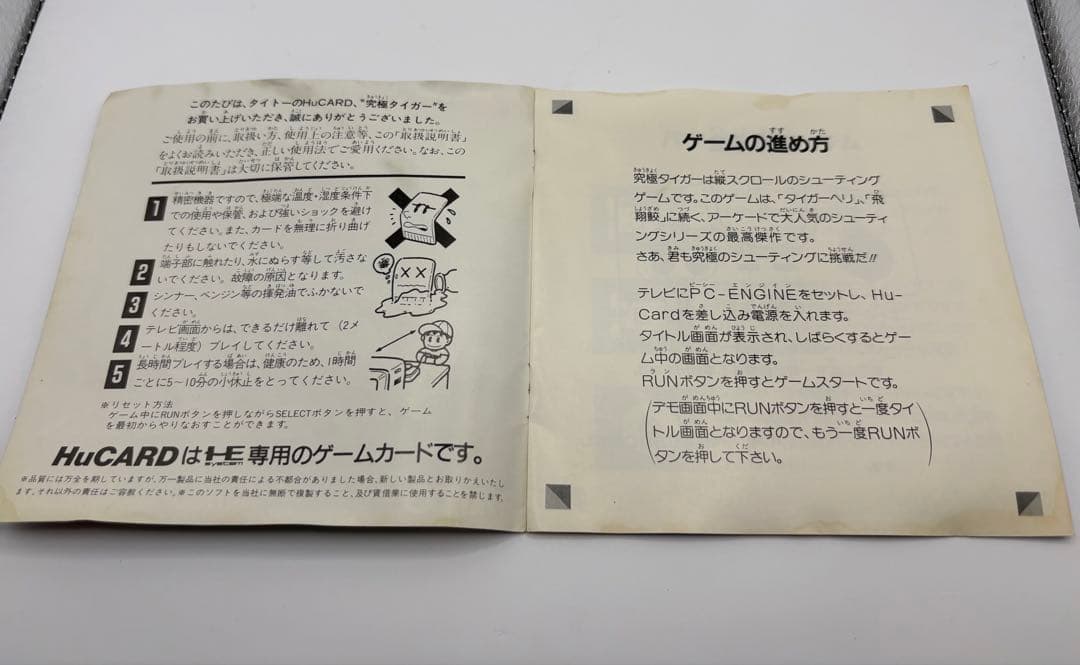 このたびは、タイトーのHuCARD、"究極タイガー"を
お買い上げいただき、誠にありがとうございました。
ご使用の前に、取扱い方、使用上の注意等、この「取扱説明書」
をよくお読みいただき、正しい使用法でご愛用ください。なお、この
「取扱説明書」は大切に保管してください。
1 精密機器ですので、極端な温度・湿度条件下
での使用や保管、および強いショックを避け
てください。また、カードを無理に折り曲げ
たりもしないでください。
2 端子部に触れたり、水にぬらす等して汚さな
いでください。故障の原因となります。
3 シンナー、ベンジン等の揮発油でふかないで
ください。
4 テレビ画面からは、できるだけ離れて(2メ
ートル程度)プレイしてください。
5 長時間プレイする場合は、健康のため、1時間
ごとに5~10分の小休止をとってください。
※リセット方法
ゲーム中にRUNボタンを押しながらSELECTボタンを押すと、ゲーム
を最初からやりなおすことができます。
HuCARDはHE SYSTEM専用のゲームカードです。
※品質には万全を期していますが、万一製品に当社の責任による不都合がありました場合、新しい製品とお取りかえいたし
ます。それ以外の責任はご容赦ください。※このソフトを当社に無断で複製すること、及び賃借業に使用することを禁じます。
ゲームの進め方
究極タイガーは縦スクロールのシューティング
ゲームです。このゲームは、「タイガーヘリ」、「飛
翔鮫」に続く、アーケードで大人気のシューティ
ングシリーズの最高傑作です。
さあ、君も究極のシューティングに挑戦だ!!
テレビにPC-ENGINEをセットし、Hu-
Cardを差し込み電源を入れます。
タイトル画面が表示され、しばらくするとゲー
ム中の画面となります。
RUNボタンを押すとゲームスタートです。
(デモ画面中にRUNボタンを押すと一度タイ
トル画面となりますので、もう一度RUNボ
タンを押して下さい。)